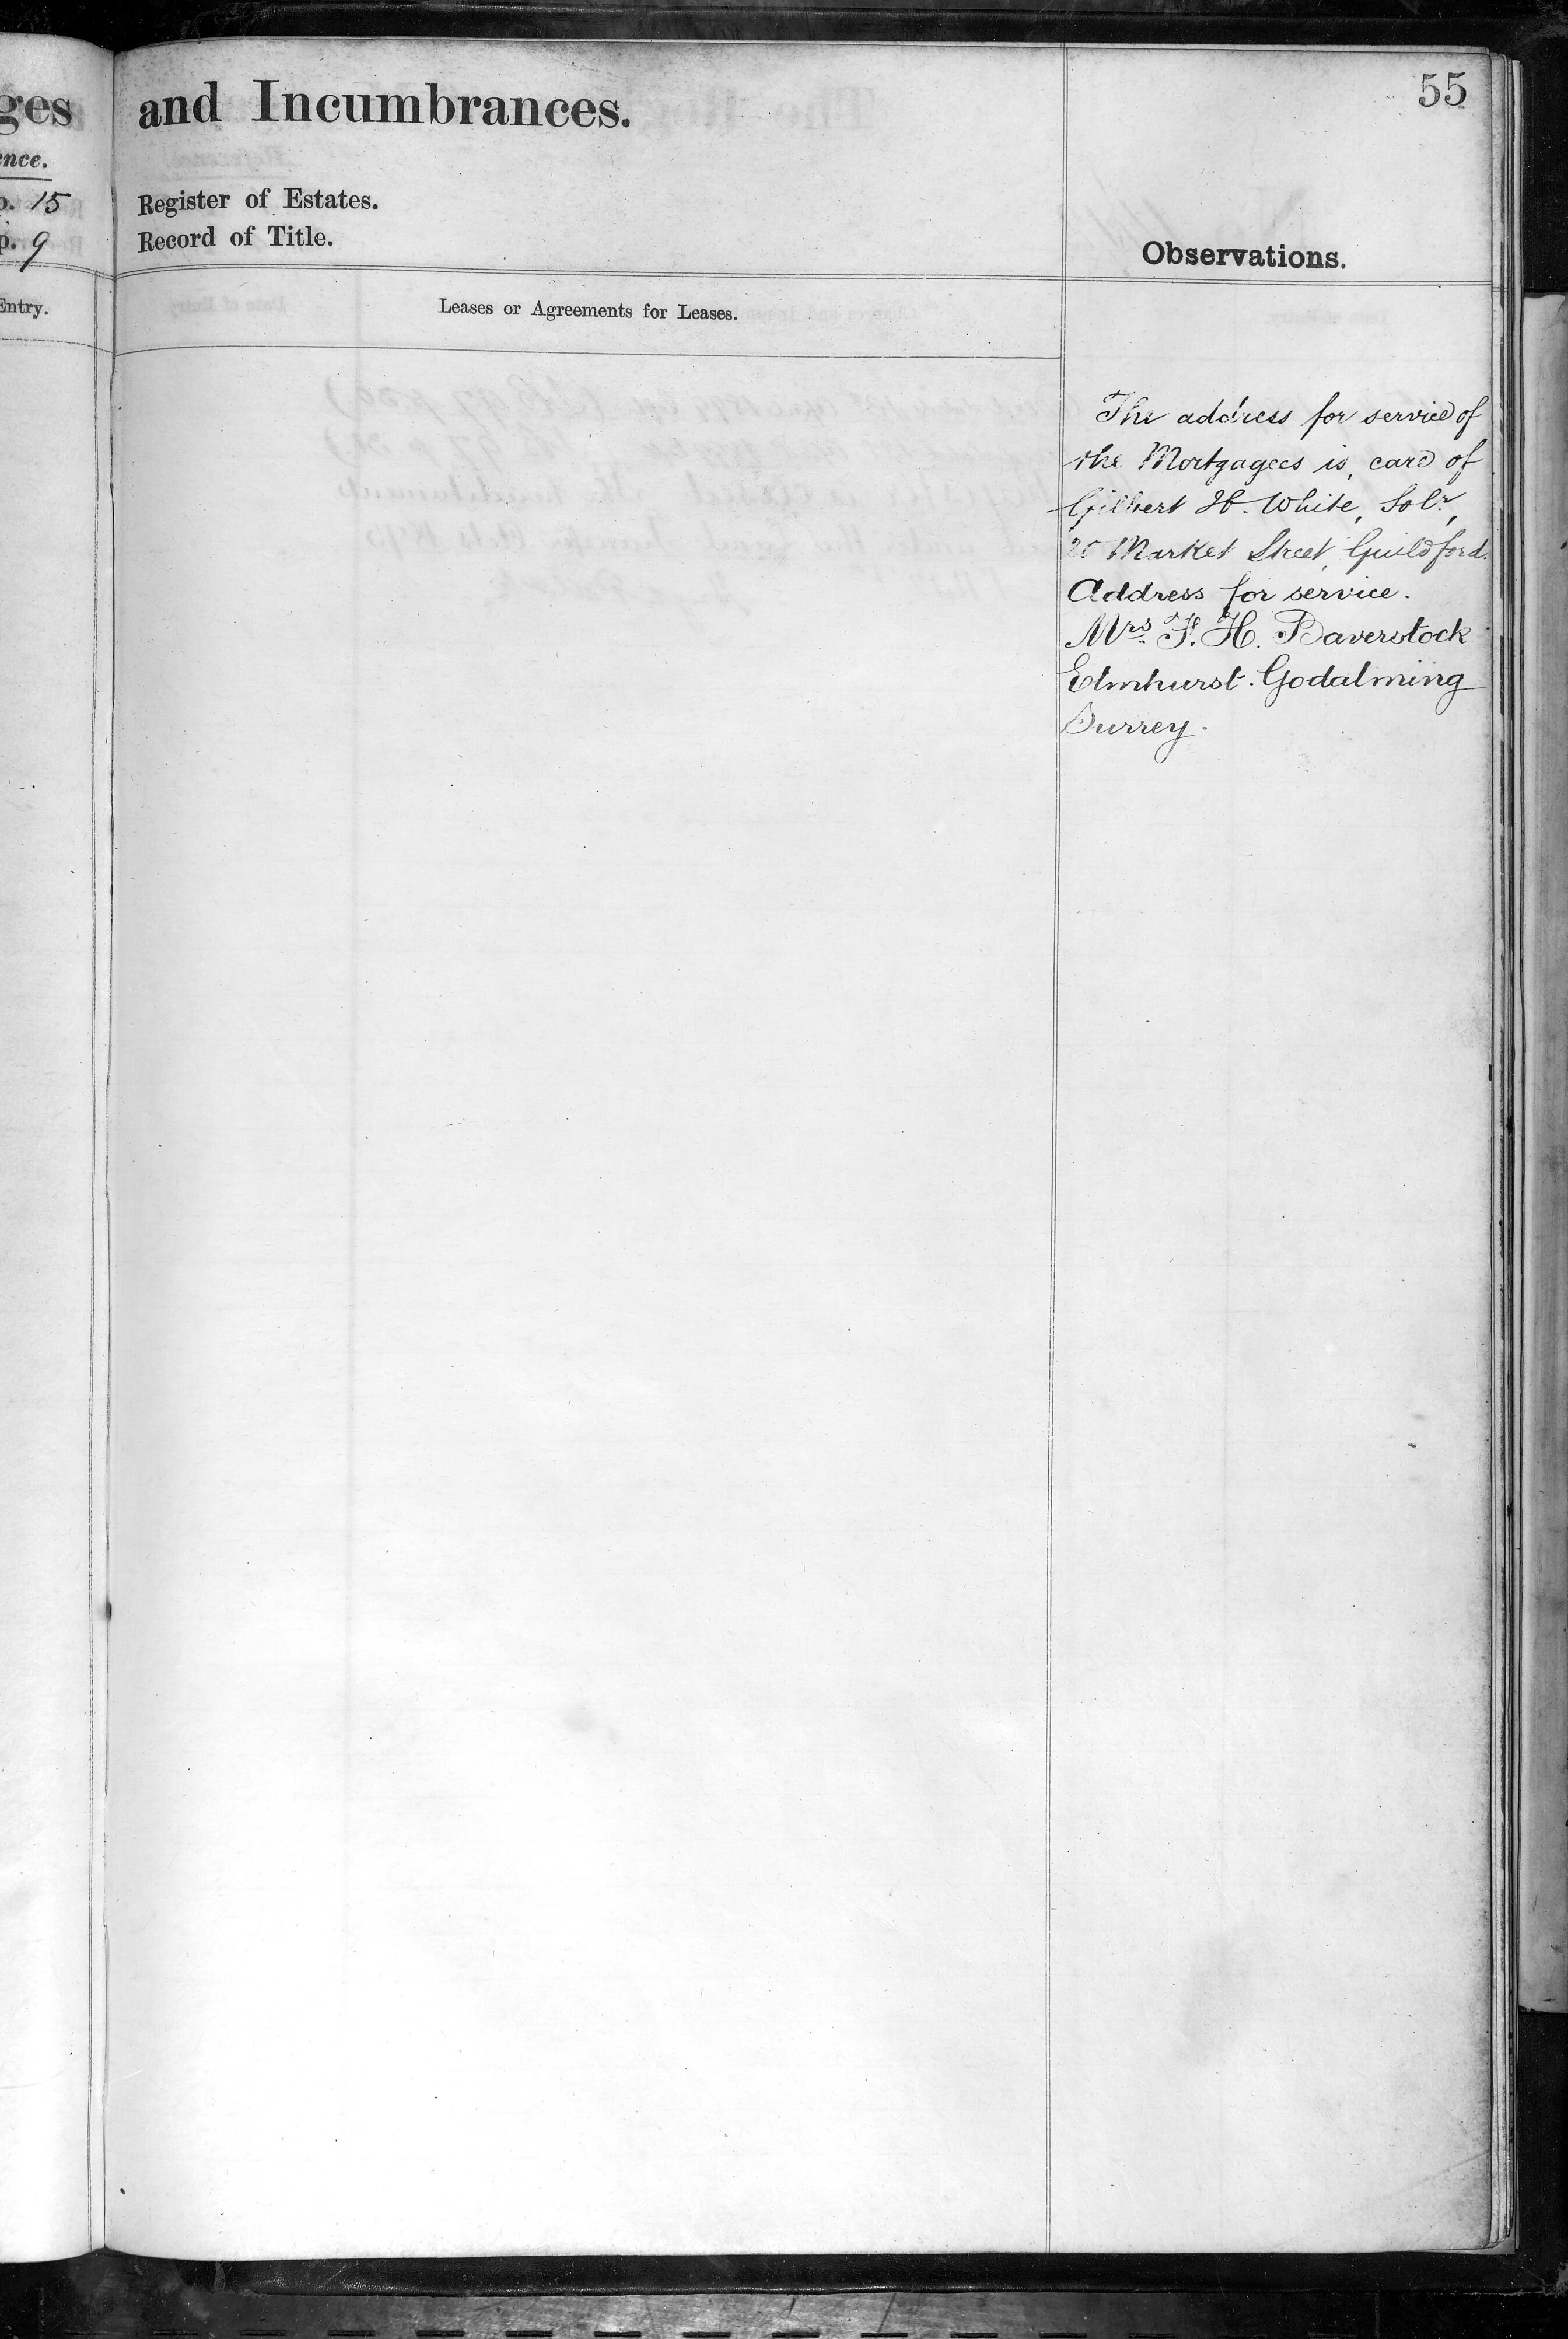 ges
ence.
p. 15
p. 9
Entry.
and Incumbrances.
55
Register of Estates.
Record of Title.
Observations.
Leases or Agreements for Leases.
The address for service of
the Mortgagees is, care of
Gilbert H. White, Solr,
20 Market Street, Guildford.
Address for service.
Mrs. F. H. Baverstock
Elmhurst. Godalming
Surrey.